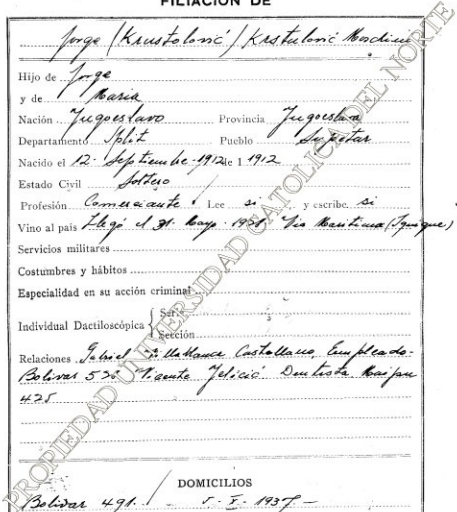 FILIACION DE
Jorge (Krustolovic') Krstulovic' Moschin
Hijo de Jorge
y de Maria
Nación Jugoeslavo Provincia Jugoeslava
Departamento Split Pueblo Supetar
Nacido el 12 - Septiembre - 1912 de 1 1912
Estado Civil Soltero
Profesión Comerciante Lee si y escribe. si
Vino al país Llegó el 31 - Mayo - 1931 Via Maritima (Iquique)
Servicios militares
Costumbres y hábitos
Especialidad en su acción criminal
Individual Dactiloscópica { Serie
Sección
Relaciones Gabriel Castellano, Empleado -
Bolivar Vicente Jelicic' Dentista Maipu
425
DOMICILIOS
Bolivar 491. 5 - X - 1937 -
PROPIEDAD UNIVERSIDAD CATOLICA DEL NORTE